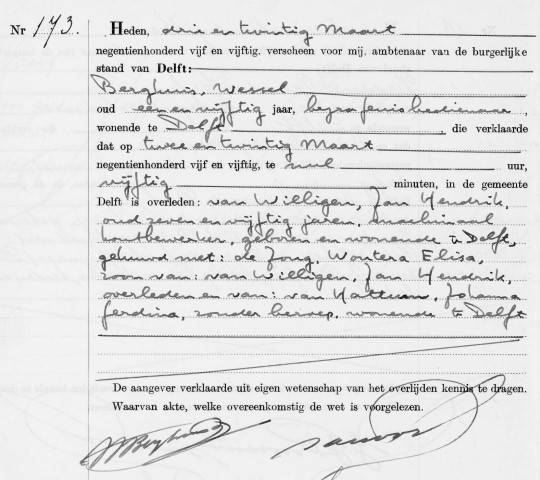 Nr 173. Heden, drie en twintig Maart
negentienhonderd vijf en vijftig, verscheen voor mij, ambtenaar van de burgerlijke
stand van Delft:
Berghuis, Wessel
oud een en vijftig jaar, begrafenisbedienaar,
wonende te Delft, die verklaarde
dat op twee en twintig Maart
negentienhonderd vijf en vijftig, te nul uur,
vijftig minuten, in de gemeente
Delft is overleden: van Willigen, Jan Hendrik,
oud zeven en vijftig jaren, machinaal
houtbewerker, geboren en wonende te Delft,
gehuwd met: de Jong, Woutera Elisa,
zoon van: van Willigen, Jan Hendrik,
overleden en van: van Hattum, Johanna
ferdina, zonder beroep, wonende te Delft
De aangever verklaarde uit eigen wetenschap van het overlijden kennis te dragen.
Waarvan akte, welke overeenkomstig de wet is voorgelezen.